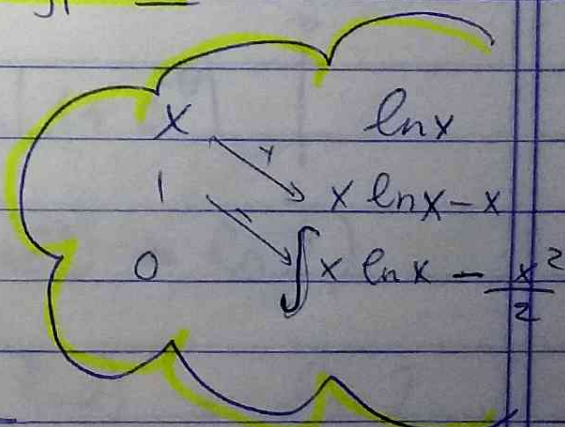 x ln x
1 x ln x - x
0 ∫ x ln x - x²/2